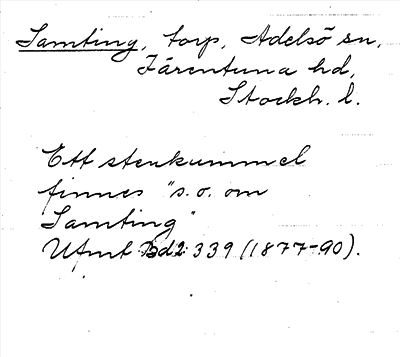 Samting, torp, Adelsö sn,
Färentuna hd,
Stockh. l.
Ett stenkummel
finnes "s.o. om
Samting"
Ufmt Bd2 339 (1877-90).